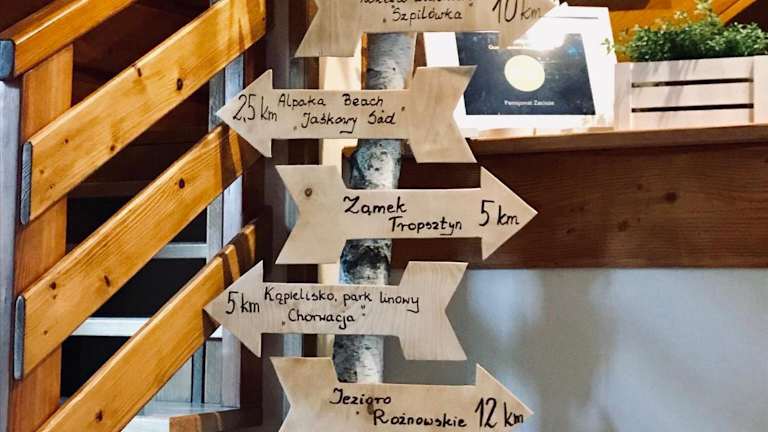 "Szpilówka"
10 km
2,5 km
Alpaka Beach
"Jaśkowy Sad"
Zamek
Tropsztyn
5 km
5 km
Kąpielisko, park linowy
"Chorwacja"
Jezioro
Rożnowskie
12 km
Pensjonat Zacisze